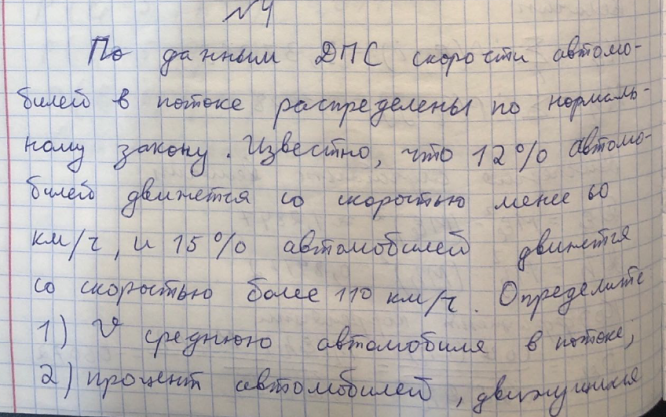 №4
По данным ДПС скорости автомо-
билей в потоке распределены по нормаль-
ному закону. Известно, что 12% автомо-
билей движется со скоростью менее 60
км/ч, и 15% автомобилей движется
со скоростью более 110 км/ч. Определите
1) V среднюю автомобиля в потоке;
2) процент автомобилей, движущихся